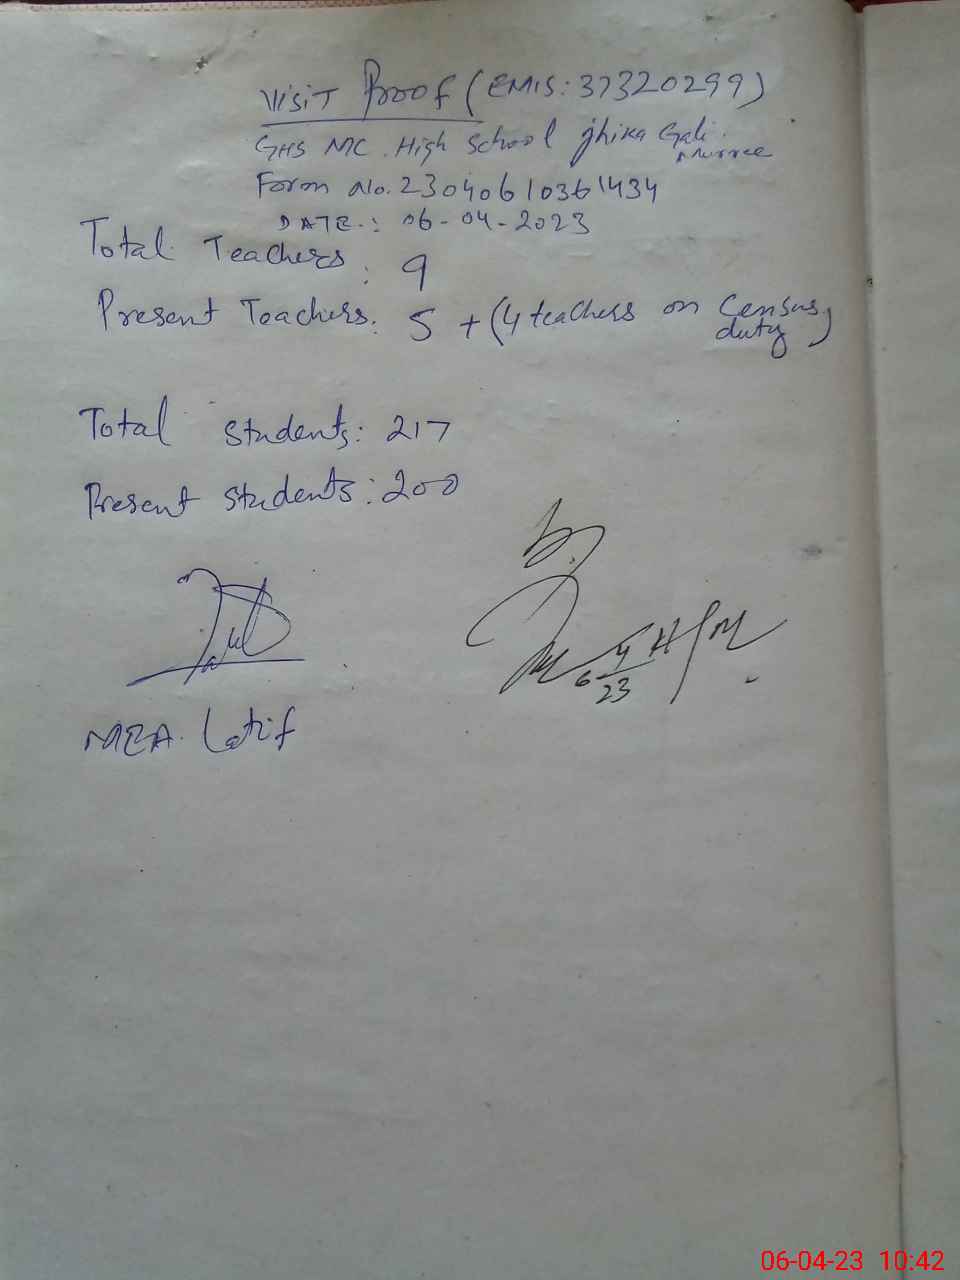 Visit Proof (EMIS: 37320299)
GHS MC. High School Jhika Gali.
Murree
Form No. 23040610361434
DATE.: 06-04-2023
Total Teachers: 9
Present Teachers: 5 + (4 teachers on Census
duty)
Total students: 217
Present students: 200
6 4 H/M
23
MEA. Latif
06-04-23 10:42